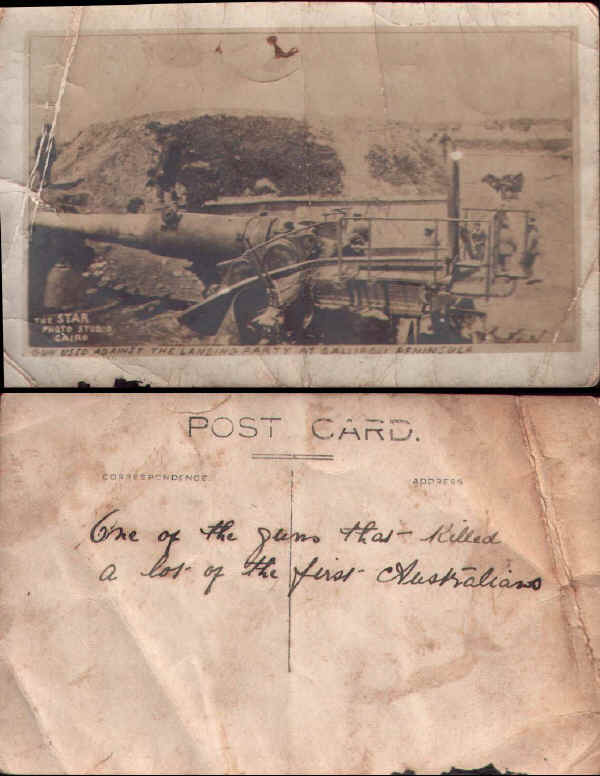 THE STAR
PHOTO STUDIO
CAIRO
GUN USED AGAINST THE LANDING PARTY AT GALLIPOLI PENINSULA
POST CARD.
CORRESPONDENCE
ADDRESS
One of the guns that killed
a lot of the first Australians